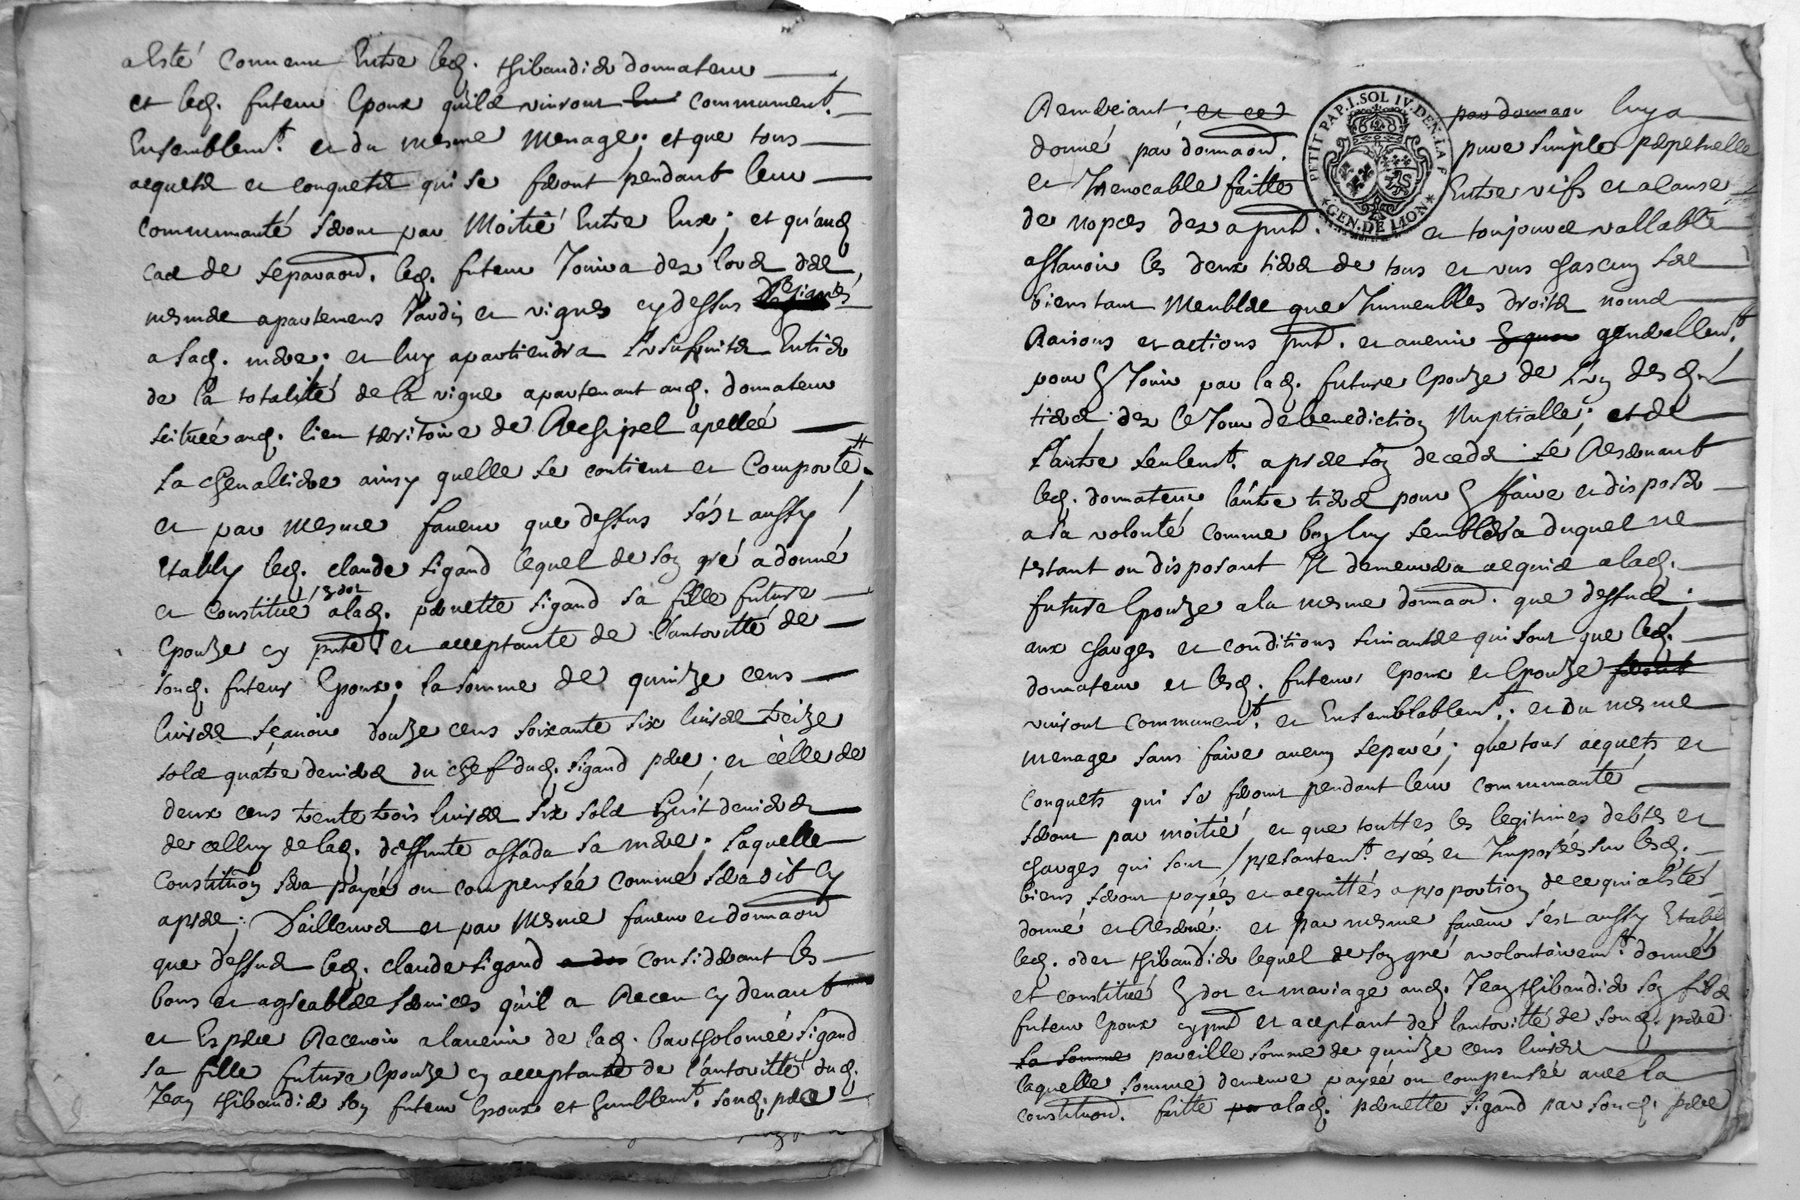 a esté convenu Entre led. thibaudier donnateur
et led. futeur Epoux quils vivront en communement
Ensemblemt. et du mesme menage; et que tous
acquets et conquets qui se feront pendant leur
communauté seront par Moitié Entre Eux; et qu'aud.
cas de separaon. led. futeur Jouira dez lors des
mesmes apartemens Jardin et vignes cy dessus Designés
a sad. mere; et luy apartiendra L'usufruit Entier
de la totalité de la vigne apartenant aud. donnateur
scituée aud. lieu territoire de apellée
La chevalliere ainsy quelle se contient et Comporte
et par mesme faveur que dessus s'est aussy
Etably led. claude sigaud lequel de son gré a donné
et Constitué en dot a lad. pernette sigaud sa fille future
Epouze cy pnte. et acceptante de l'autorité de
sond. futeur Epoux; la somme de quinze cens
livres sçavoir douze cens soixante six livres treize
sols quatre deniers du chef dud. sigaud pere; et celle de
deux cens trente trois livres six sols huit deniers
de celluy de lad. deffunte sa mere; Laquelle
Constituon sera payée ou compensée comme sera dit cy
apres; D'ailleurs et par Mesme faveur et donnaon
que dessus led. claude sigaud considerant les
bons et agreables services quil a Receu cy devant
et Espere Recevoir a lavenir de lad. bartholomée sigaud
sa fille future Epouze cy acceptante de l'autoritté dud.
Jean thibaudier son futeur Epoux et humblemt. sond. pere
Remerciant et ces par donnaon luy a
donné par donnaon. pure simple perpetuelle
et Irrevocable faitte Entre vifs et a cause
de nopces dez a pnt. et toujours vallable
assavoir les deux tiers de tous et uns chascun ses
biens tant Meubles que Immeubles droits noms
Raisons et actions pnt. et avenir generallemt.
pour en Jouir par lad. future Epouze de l'un desd.
tiers dez le Jour de benediction Nuptialle; et de
L'autre seulemt. apres son deceds se Reservant
led. donnateur l'autre tiers pour en faire et disposer
a sa volonté comme bon luy semblera duquel ne
testant ou disposant Il demeurera acquis a lad.
future Epouze a la mesme donnaon. que dessus;
aux charges et conditions suivantes qui sont que led.
donnateur et lesd. futeurs Epoux et Epouze seront
vivront communemt. et Ensemblablemt. et du mesme
menage sans faire aucun separé; que tous acquets et
Conquets qui se feront pendant leur communauté
seront par moitié et que touttes les legitimes debtes et
charges qui sont presantemt. creés et Imposées sur lesd.
biens seront payées et acquittés a proportion de ce qui a esté
donné et Reservé; et par mesme faveur s'est aussy Etably
led. odet thibaudier lequel de son gré a volontairemt. donné
et constitué en dot et mariage aud. Jean thibaudier son fils
futeur Epoux cy pnt. et aceptant de l'autoritté de sond. pere
La somme pareille somme de quinze cens livres
laquelle somme demeure payée ou compensée avec la
constituon. faitte a lad. pernette sigaud par sond. pere
PETIT PAP. I. SOL IV. DEN. LA F
GEN. DE LION